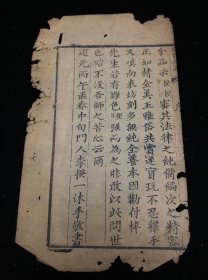 審其法律之純備編次之精密
正如精金美玉雅俗共賞遂寶玩不忍釋手
又慎向來坊刻多無純全善本因勸付梓
先生若有難色撰強而為之非敢以此問世
也聊不沒吾師之苦心云爾
道光丙午孟春中旬門人李撰一沐手敬